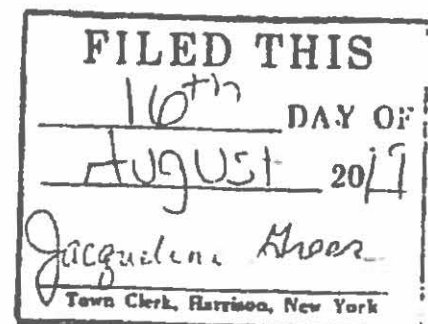 FILED THIS
16th DAY OF
August 2019
Jacqueline Greer
Town Clerk, Harrison, New York